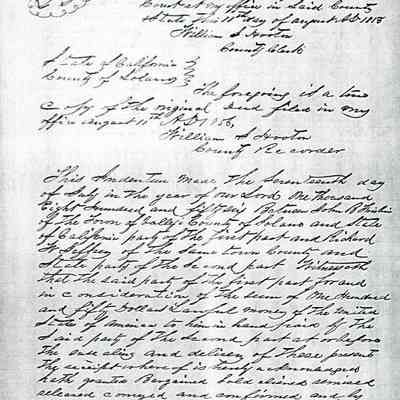 Court at my office in Said County
State this 18th day of august AD 1858
William S Hooten
County Clerk
State of California
County of Solano
The foregoing is a true
Copy of the original Deed filed in my
office august 18th A.D. 1856,
William S Hooten
County Recorder
This Indenture Made the Seventeenth day
of July in the year of our Lord One thousand
Eight Hundred and fifty six Between John B
of the Town of Vallejo County of Solano and State
of California party of the first part and Richard
Jeffrey of the Same Town County and
State party of the Second part Witnesseth
that the said party of the first part for and
in consideration of the sum of One Hundred
and fifty Dollars Lawful money of the United
States of America to him in hand paid by the
Said party of the Second part at or before
the ensealing and delivery of these presents
the receipt whereof is hereby acknowledged
hath granted Bargained Sold aliened remised
released conveyed and confirmed and by